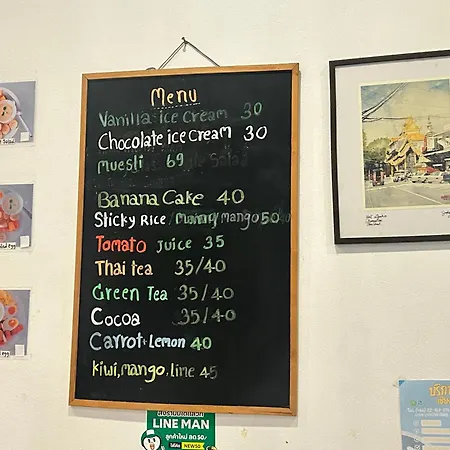 Menu
Vanilla ice cream 30
Chocolate ice cream 30
Muesli 69
Banana Cake 40
Sticky Rice mango 50
Tomato juice 35
Thai tea 35/40
Green Tea 35/40
Cocoa 35/40
Carrot+Lemon 40
kiwi, mango, lime 45
LINE MAN
ลูกค้าใหม่ ลด 50.-
NEW50